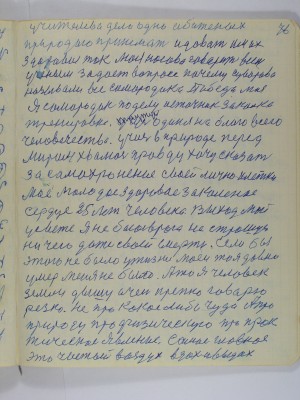 76
учителева дело одно обитаемых
природою принимат и доват и них
здоровия так Мои носово говорят всем
ученым задает вопросс почему Суворова
называли все самородика Победа моя
Я самородок поделу источник закалка
тренировка. един на благо всего
человечество. учил в природе перед
Миром хвалюсь правду хочу сказат
за самохронение своей лично клетки
Моё Молодое Здоровое Закаленное
сердце 25 лет человека Выход мой
увсете Я не боюсь врага не страшусь
ни чего даже своей смерти. Если бы
этого не было у жизни Моей то я давно
умер меня не было. А то я человек
земли дышу очен крепко говорю
резко. Не про какое либо чудо А про
природу про физическую про прак
тическое явление. Самое главное
это чистый воздух вдох и выдох